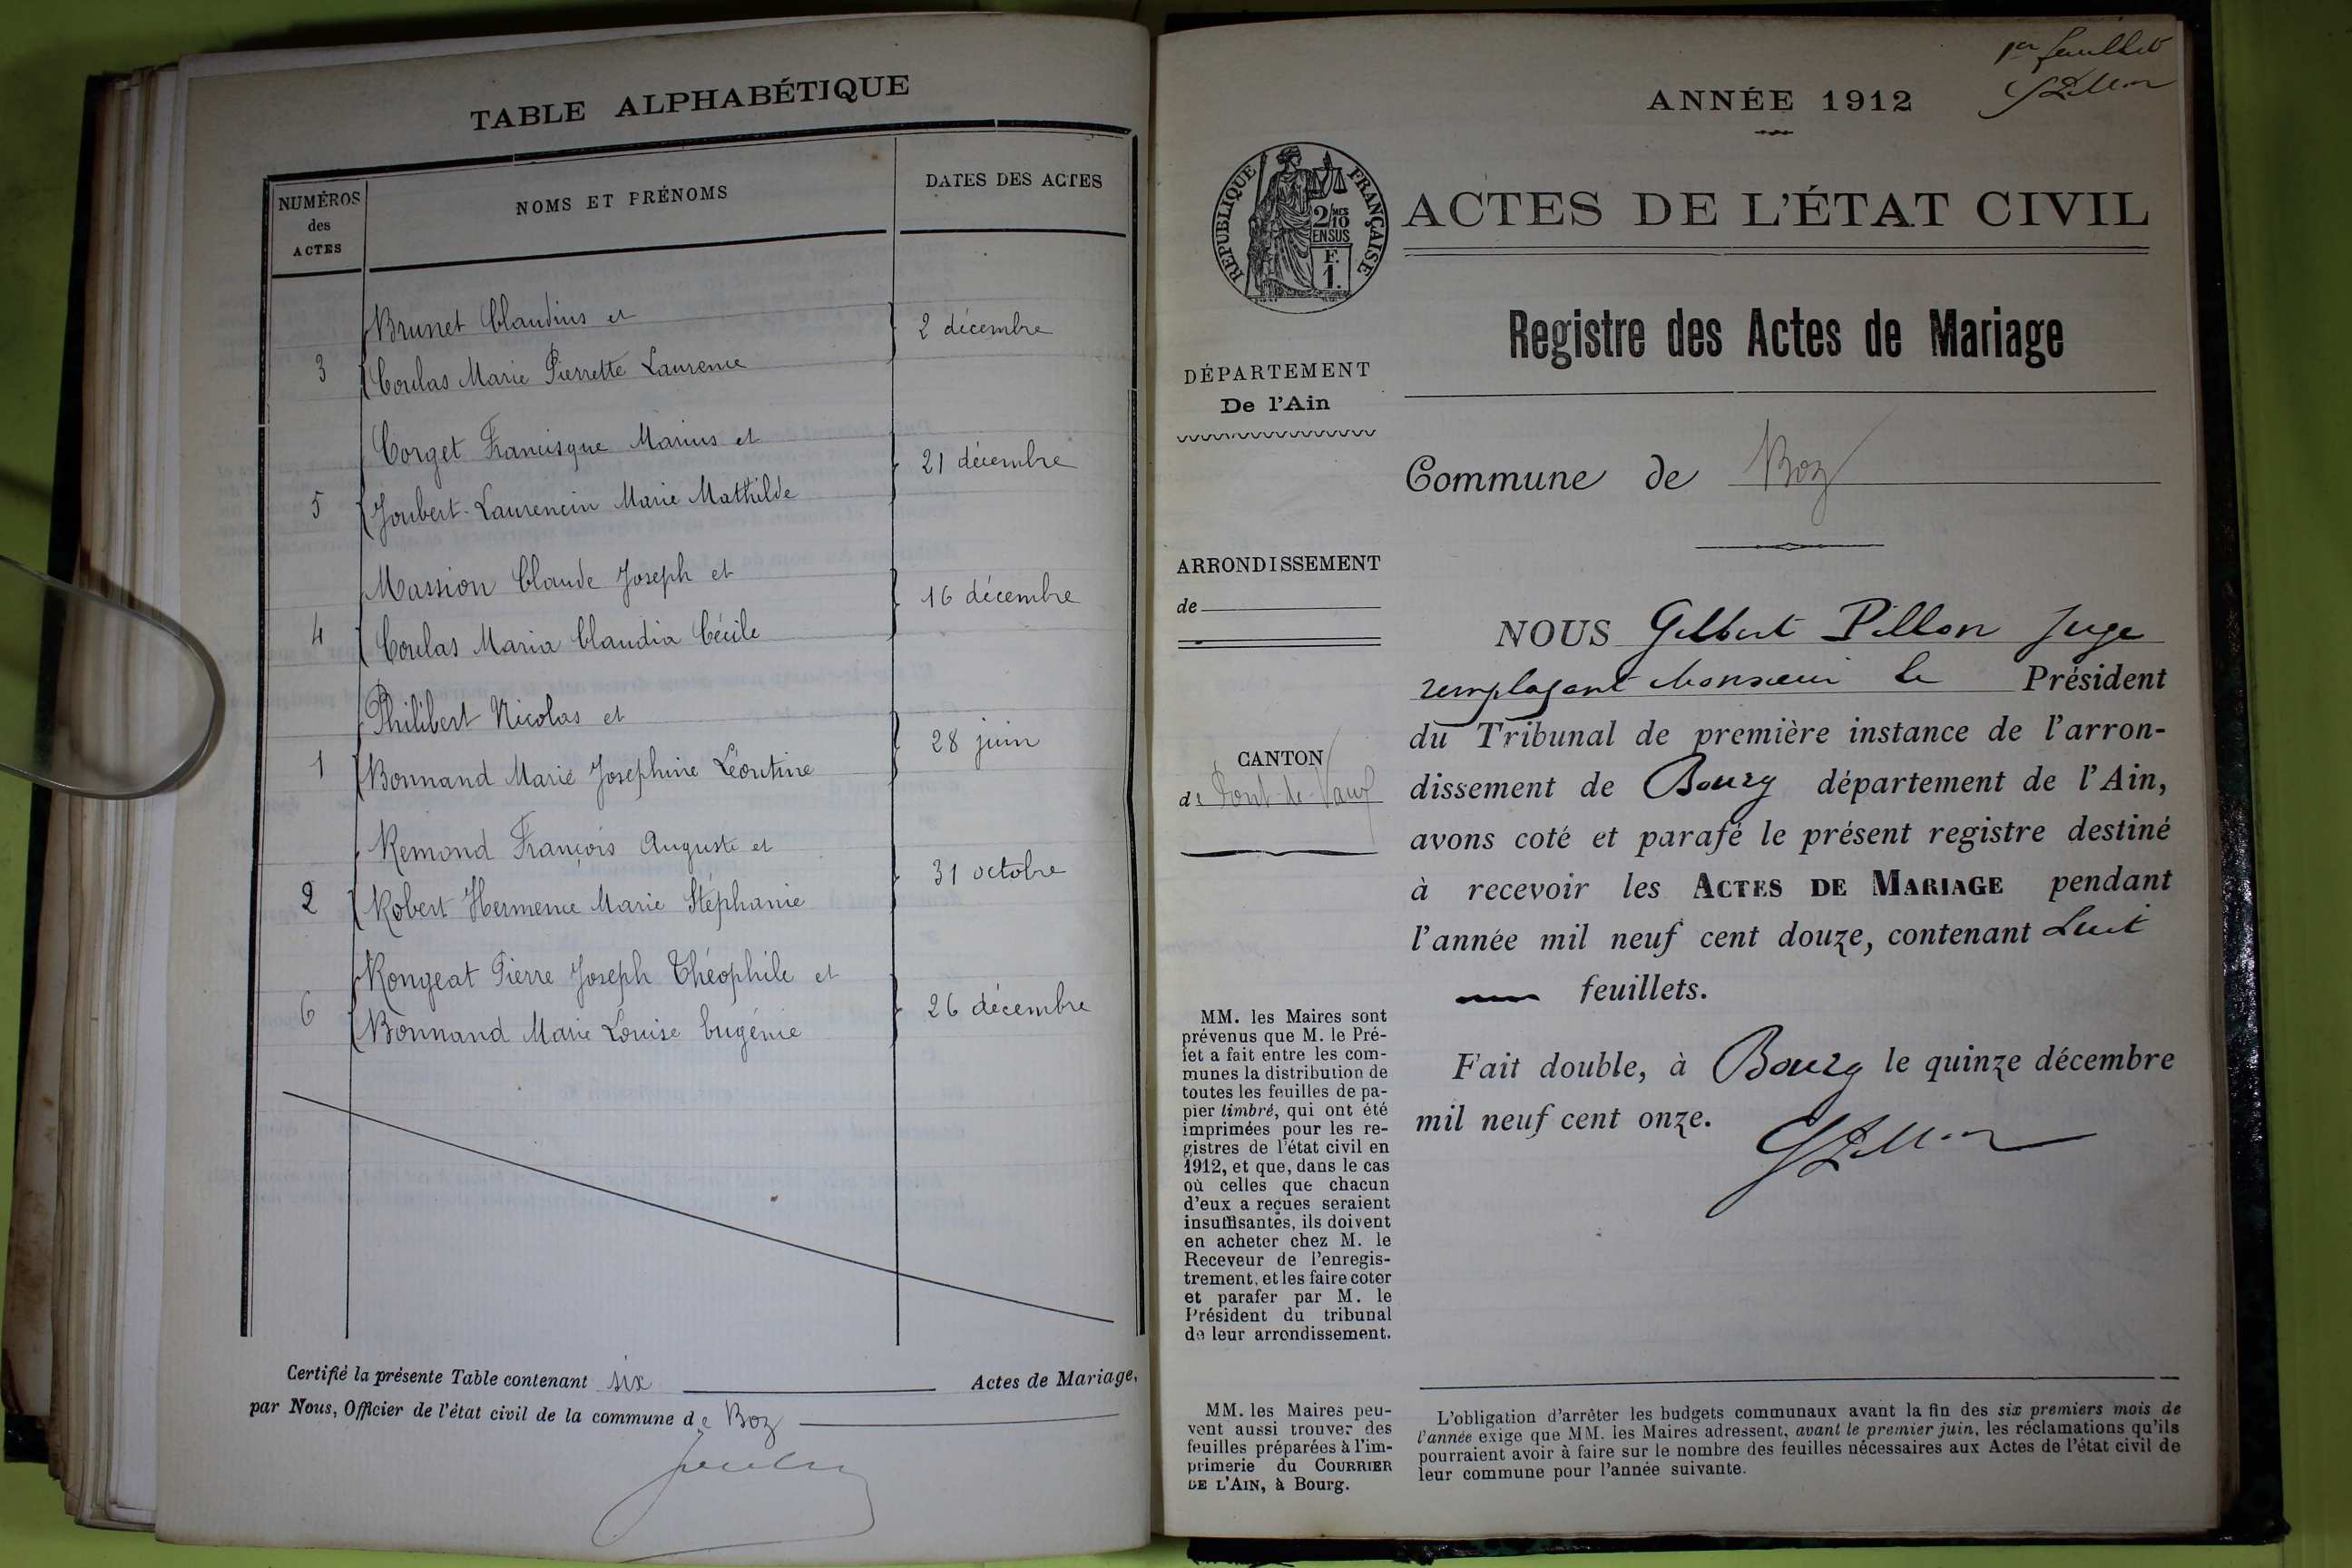 TABLE ALPHABÉTIQUE
NUMÉROS
des
ACTES
NOMS ET PRÉNOMS
DATES DES ACTES
Brunet Claudius et
3 Coulas Marie Pierrette Laurence
2 décembre
Corget Francisque Marius et
5 Joubert-Laurencin Marie Mathilde
21 décembre
Massion Claude Joseph et
4 Coulas Maria Claudia Cécile
16 décembre
Philibert Nicolas et
1 Bonnand Marie Josephine Léontine
28 juin
Remond François Auguste et
2 Robert Hermence Marie Stéphanie
31 octobre
Rongeat Pierre Joseph Théophile et
6 Bonnand Marie Louise Eugénie
26 décembre
Certifié la présente Table contenant six Actes de Mariage,
par Nous, Officier de l'état civil de la commune de Boz
1er feuillet
ANNÉE 1912
RÉPUBLIQUE FRANÇAISE
2/10 MES
EN SUS
F.
1.
ACTES DE L'ÉTAT CIVIL
Registre des Actes de Mariage
DÉPARTEMENT
De l'Ain
Commune de Boz
ARRONDISSEMENT
de
CANTON
de Pont-de-Vaux
MM. les Maires sont
prévenus que M. le Pré-
fet a fait entre les com-
munes la distribution de
toutes les feuilles de pa-
pier timbré, qui ont été
imprimées pour les re-
gistres de l'état civil en
1912, et que, dans le cas
où celles que chacun
d'eux a reçues seraient
insuffisantes, ils doivent
en acheter chez M. le
Receveur de l'enregis-
trement, et les faire coter
et parafer par M. le
Président du tribunal
de leur arrondissement.
MM. les Maires peu-
vent aussi trouver des
feuilles préparées à l'im-
primerie du COURRIER
DE L'AIN, à Bourg.
NOUS Gilbert Pillon Juge
remplaçant Monsieur le Président
du Tribunal de première instance de l'arron-
dissement de Bourg département de l'Ain,
avons coté et parafé le présent registre destiné
à recevoir les ACTES DE MARIAGE pendant
l'année mil neuf cent douze, contenant huit
feuillets.
Fait double, à Bourg le quinze décembre
mil neuf cent onze.
GPillon
L'obligation d'arrêter les budgets communaux avant la fin des six premiers mois de
l'année exige que MM. les Maires adressent, avant le premier juin, les réclamations qu'ils
pourraient avoir à faire sur le nombre des feuilles nécessaires aux Actes de l'état civil de
leur commune pour l'année suivante.